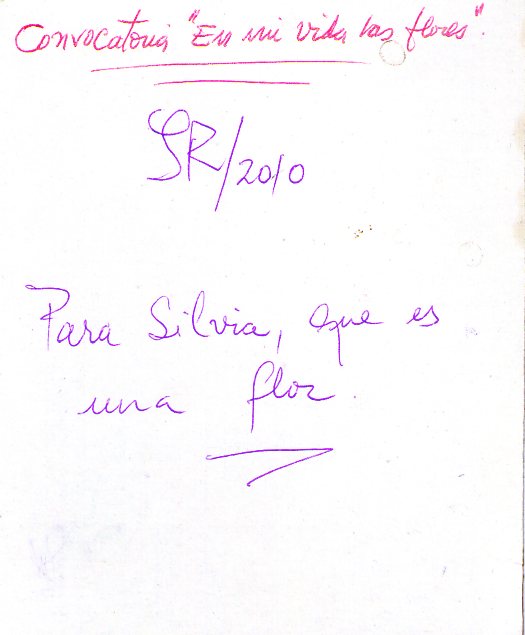 Convocatoria "En mi vida las flores".
SR/2010
Para Silvia, que es
una flor.